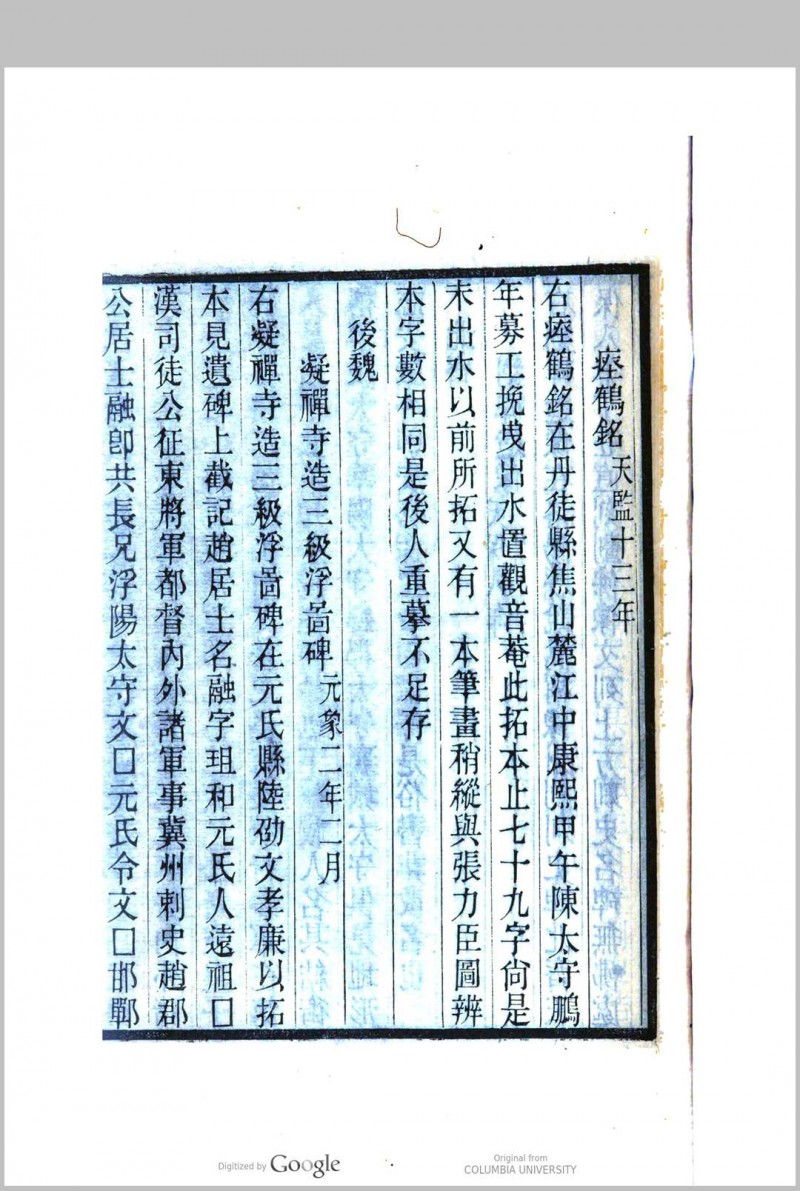 瘞鶴銘 天監十三年
右瘞鶴銘在丹徒縣焦山麓江中康熙甲午陳太守鵬
年募工挽曳出水置觀音菴此拓本止七十九字尙是
未出水以前所拓又有一本筆畫稍縱與張力臣圖辨
本字數相同是後人重摹不足存
後魏
凝禪寺造三級浮啚碑 元象二年二月
右凝禪寺造三級浮啚碑在元氏縣陸劭文孝廉以拓
本見遺碑上截記趙居士名融字珇和元氏人遠祖□
漢司徒公征東將軍都督內外諸軍事冀州刺史趙郡
公居士融卽共長兄浮陽太守文□元氏令文□邯鄲
Digitized by Google
Original from
COLUMBIA UNIVERSITY